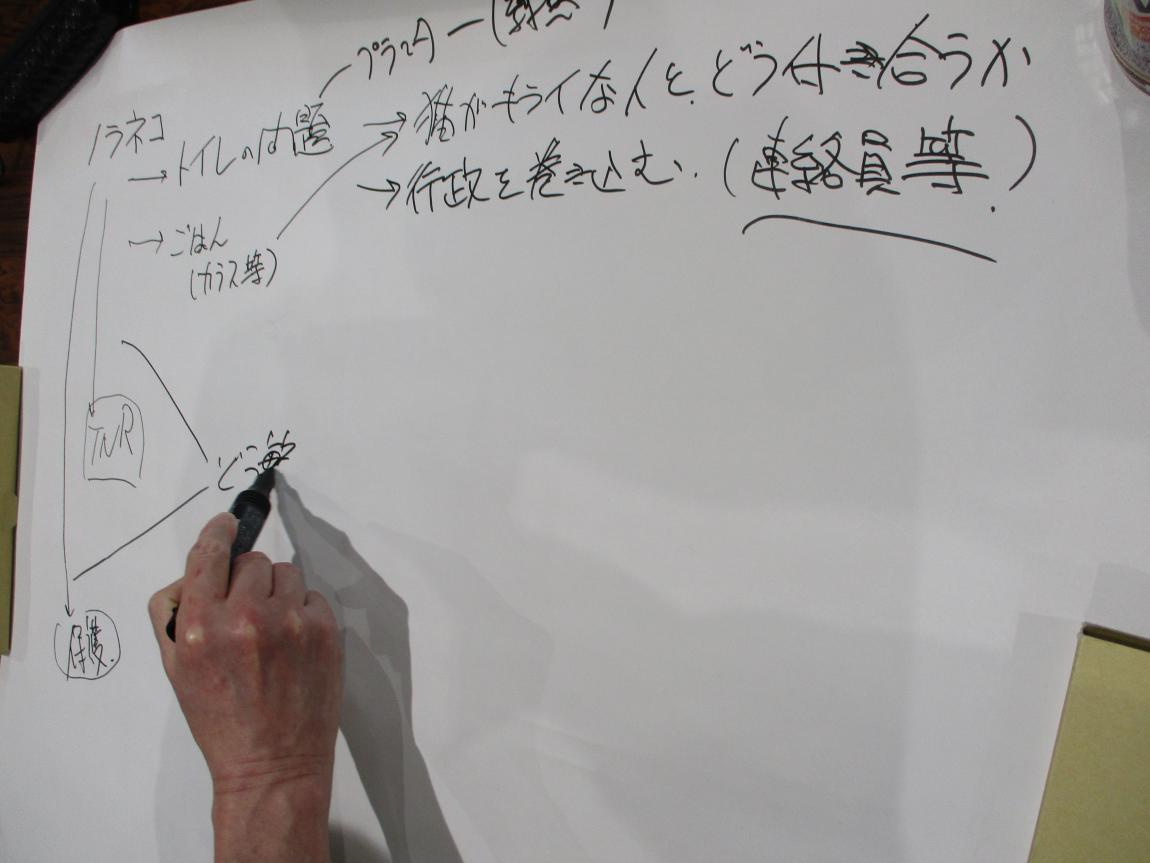 ノラネコ
→ トイレの問題
→ ごはん
(カラス等)
→ 猫がキライな人と、どう付き合うか
→ 行政を巻き込む. (連絡員等.)
TNR
保護.
どう